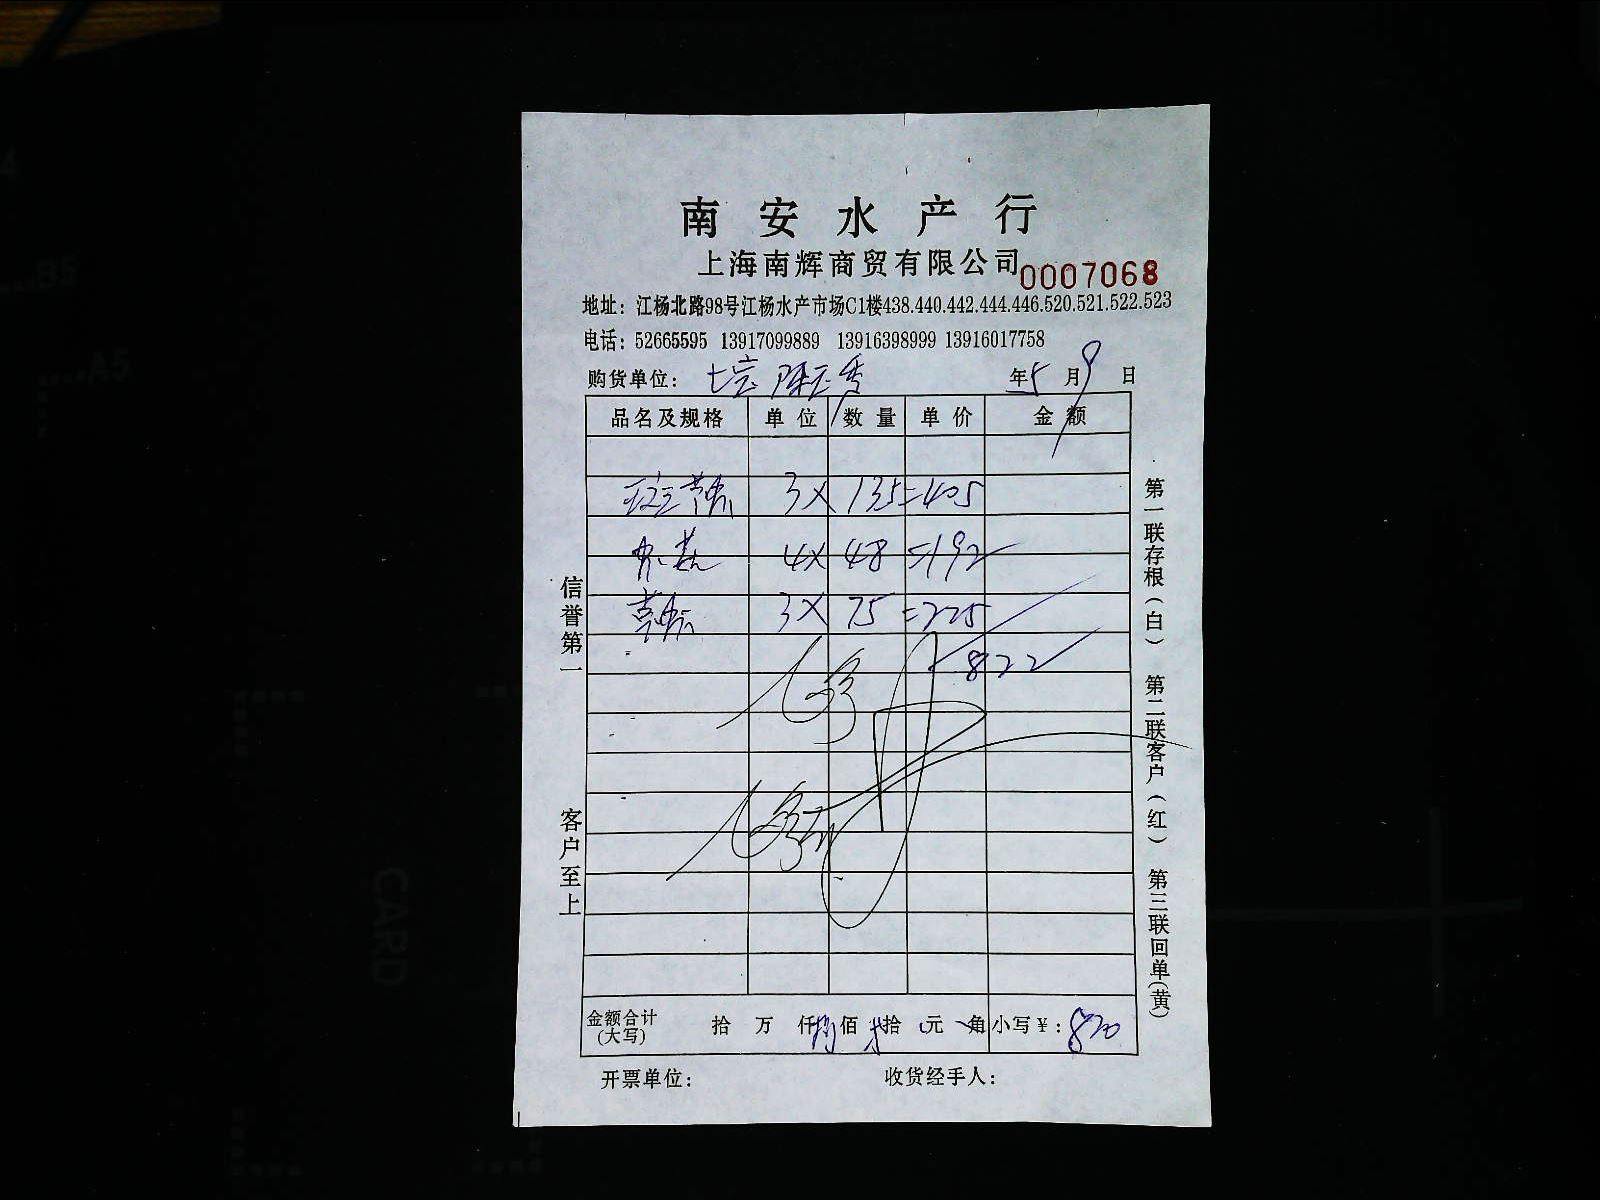 南安水产行
上海南辉商贸有限公司
0007068
地址：江杨北路98号江杨水产市场C1楼438.440.442.444.446.520.521.522.523
电话：52665595 13917099889 13916398999 13916017758
购货单位： 年5月9日
品名及规格 单位 数量 单价 金额
3X 135=405
4X 48=192
3X 75=225
822
金额合计(大写) 拾 万 仟捌佰贰拾 元 角 小写￥：820
开票单位： 收货经手人：
信誉第一
客户至上
第一联存根(白) 第二联客户(红) 第三联回单(黄)